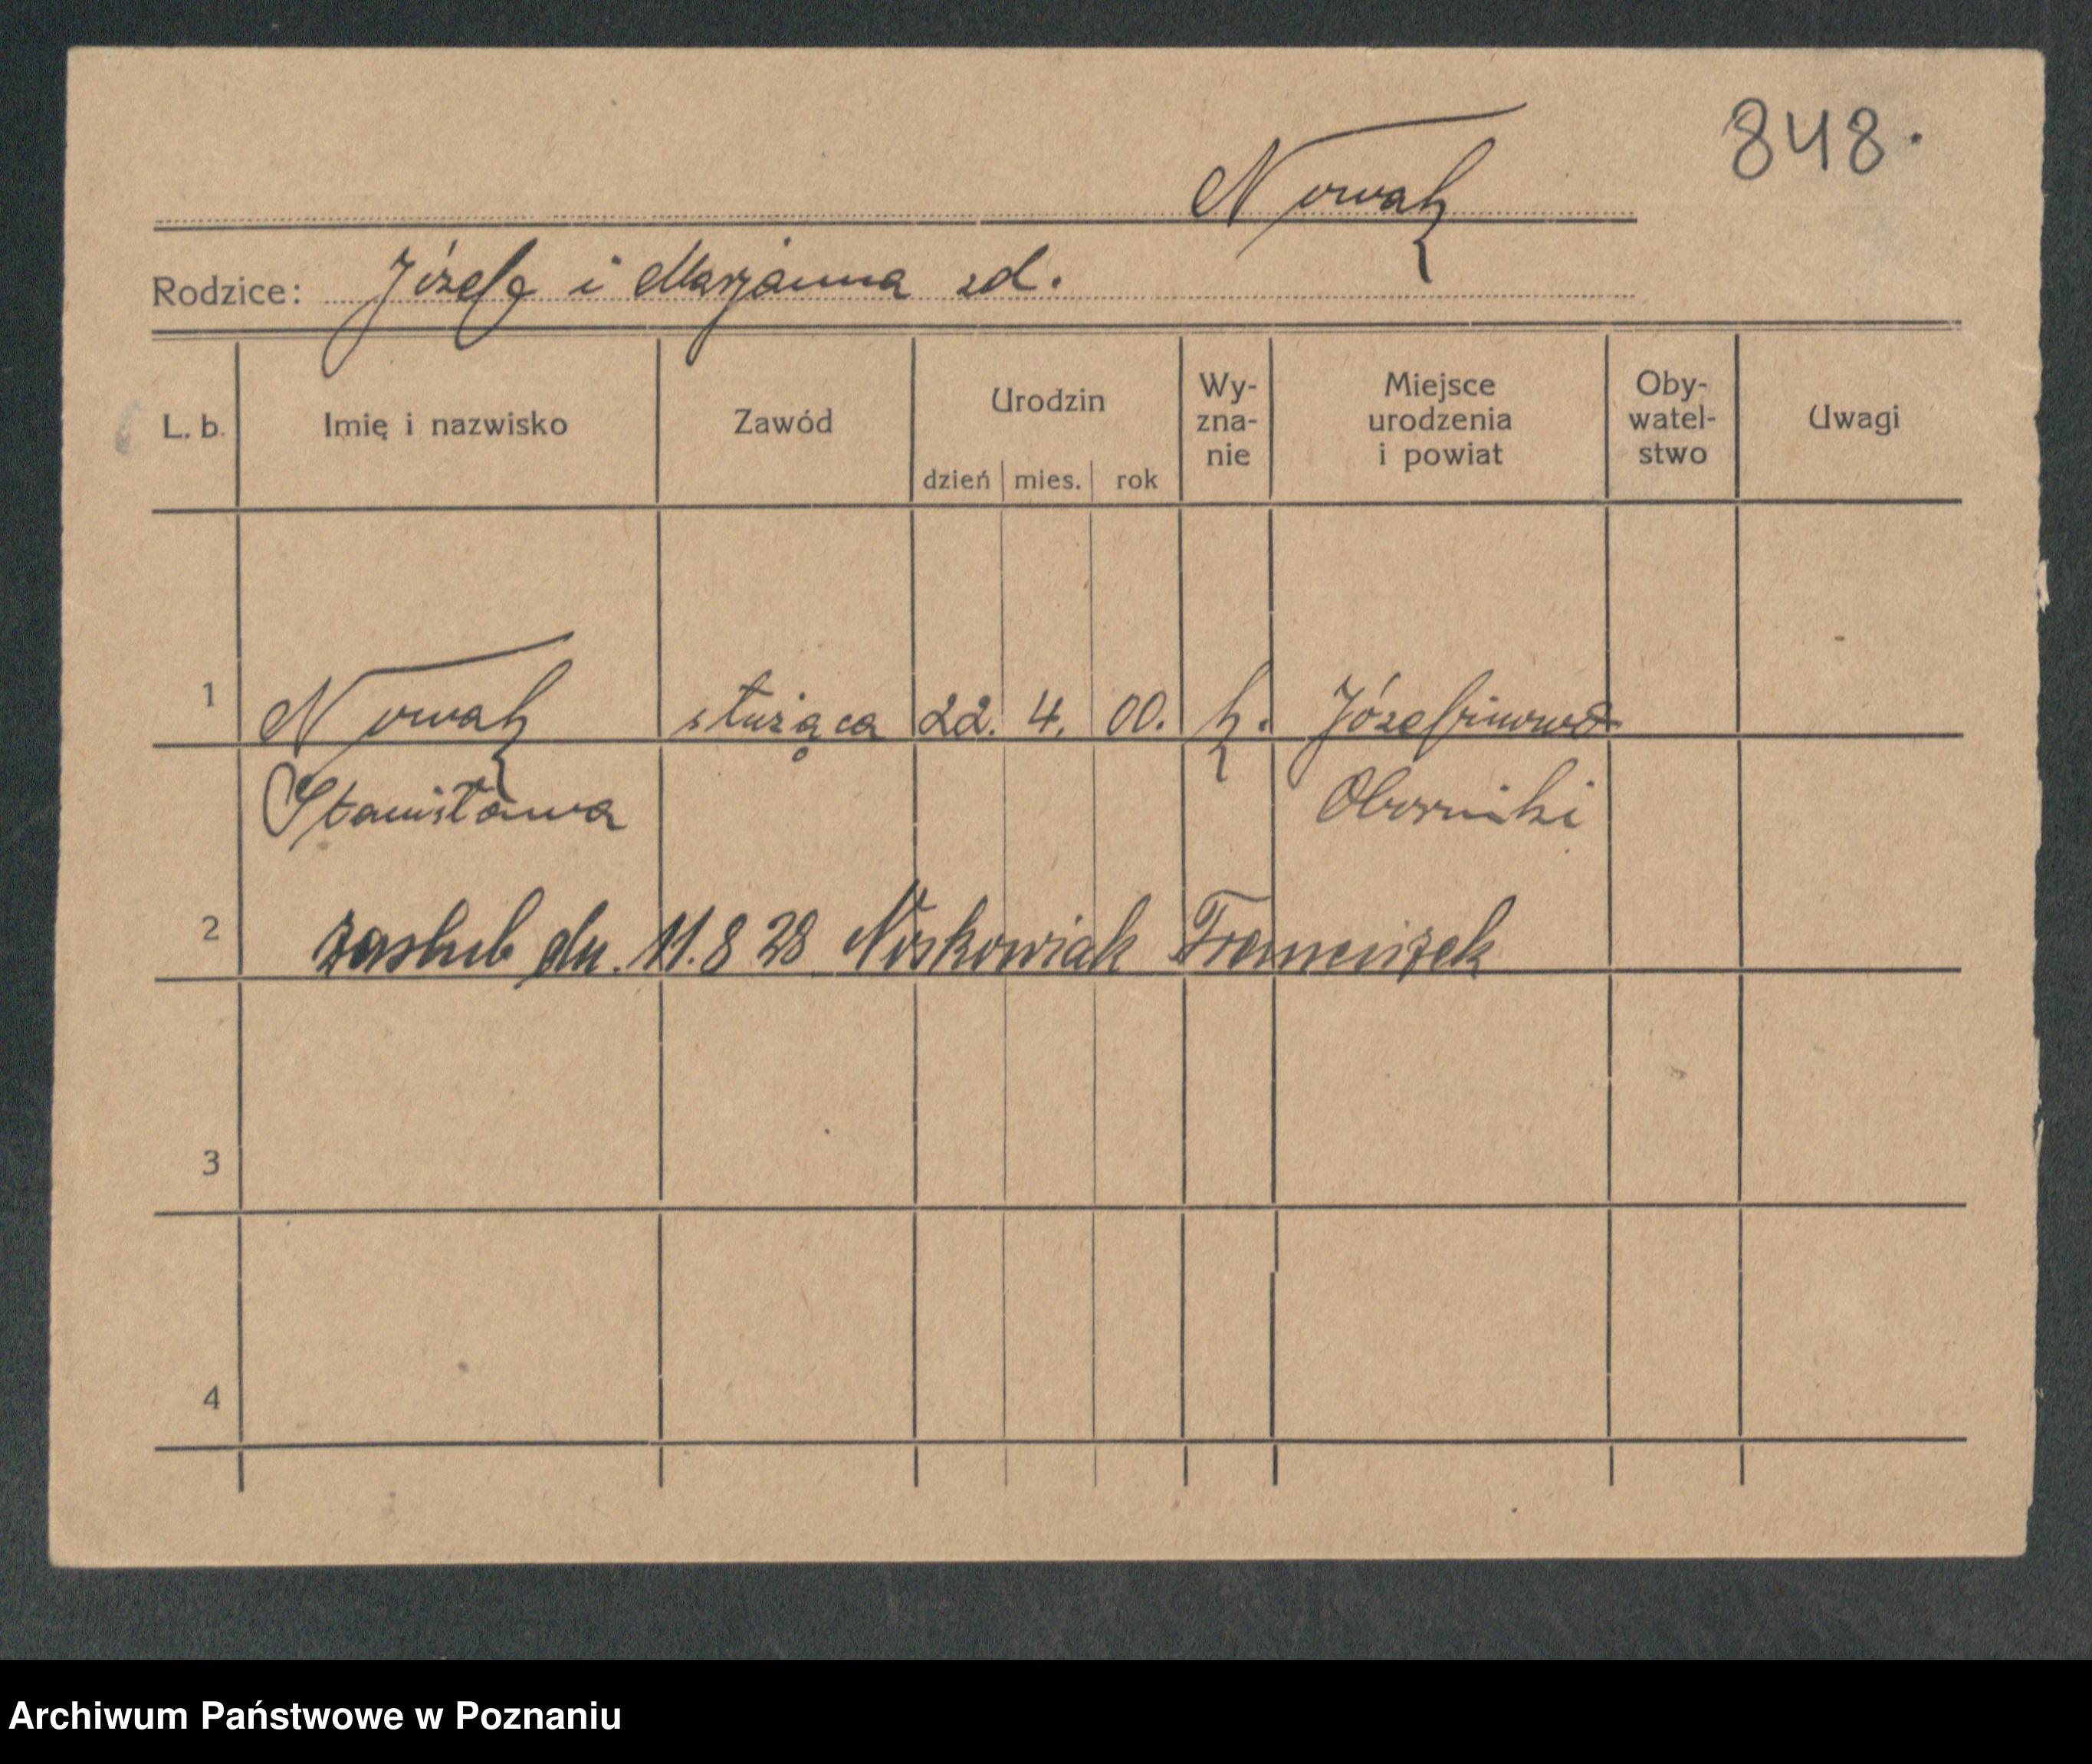 848.
Nowak
Rodzice: Józef i Marjanna zd.
L. b. Imię i nazwisko Zawód Urodzin Wy- Miejsce Oby- Uwagi
zna- urodzenia watel-
nie i powiat stwo
dzień mies. rok
1 Nowak służąca 22. 4. 00. k. Józefinowo
Stanisława Oborniki
2 zaślub dn. 11.8 28 Noskowiak Franciszek
3
4
Archiwum Państwowe w Poznaniu